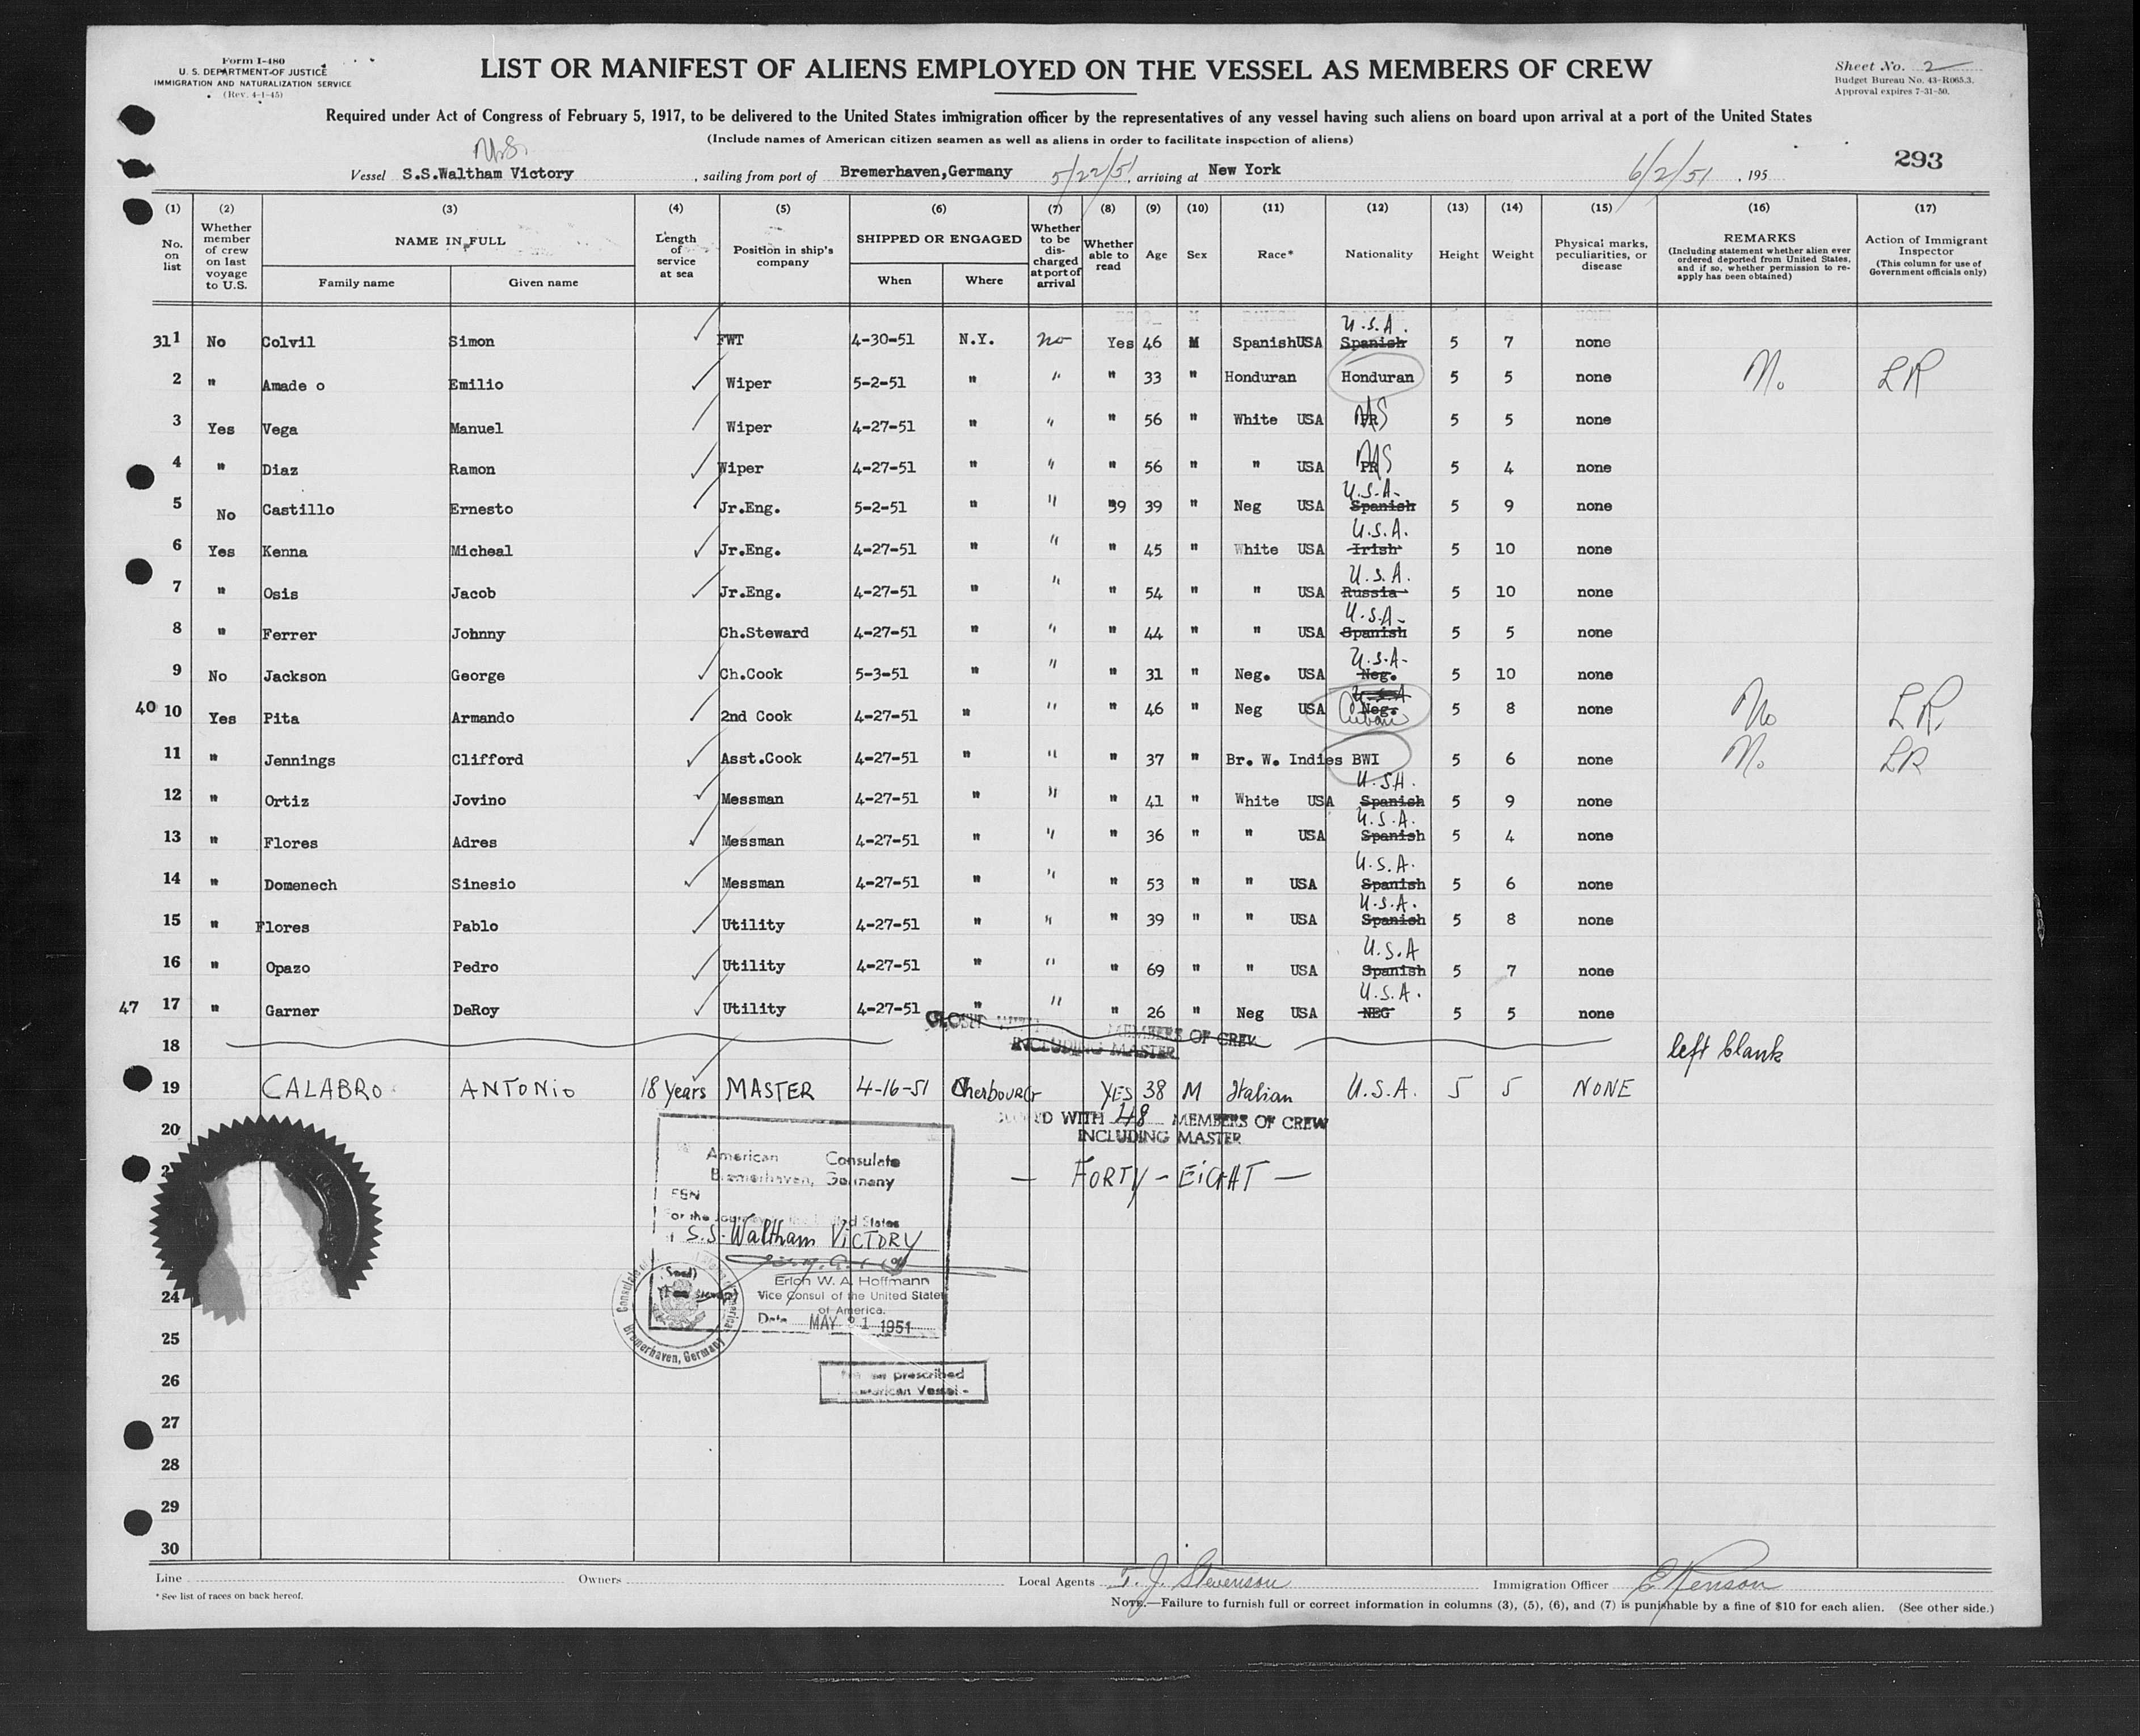 Form I-480
U. S. DEPARTMENT OF JUSTICE
IMMIGRATION AND NATURALIZATION SERVICE
(Rev. 4-1-45)
LIST OR MANIFEST OF ALIENS EMPLOYED ON THE VESSEL AS MEMBERS OF CREW
Sheet No. 2
Budget Bureau No. 43-R065.3.
Approval expires 7-31-50.
Required under Act of Congress of February 5, 1917, to be delivered to the United States immigration officer by the representatives of any vessel having such aliens on board upon arrival at a port of the United States
(Include names of American citizen seamen as well as aliens in order to facilitate inspection of aliens)
293
Vessel S.S.Waltham Victory , sailing from port of Bremerhaven,Germany 5/22/51, arriving at New York 6/2/51 , 195
(1) (2) (3) (4) (5) (6) (7) (8) (9) (10) (11) (12) (13) (14) (15) (16) (17)
No. on list
Whether member of crew on last voyage to U.S.
NAME IN FULL
Family name
Given name
Length of service at sea
Position in ship's company
SHIPPED OR ENGAGED
When
Where
Whether to be discharged at port of arrival
Whether able to read
Age
Sex
Race*
Nationality
Height
Weight
Physical marks, peculiarities, or disease
REMARKS
(Including statement whether alien ever ordered deported from United States, and if so, whether permission to reapply has been obtained)
Action of Immigrant Inspector
(This column for use of Government officials only)
31 1 No Colvil Simon FWT 4-30-51 N.Y. no Yes 46 M Spanish USA Spanish U.S.A. 5 7 none
2 " Amade o Emilio Wiper 5-2-51 " " " 33 " Honduran Honduran 5 5 none No LR
3 Yes Vega Manuel Wiper 4-27-51 " " " 56 " White USA PR US 5 5 none
4 " Diaz Ramon Wiper 4-27-51 " " " 56 " " USA PR US 5 4 none
5 No Castillo Ernesto Jr.Eng. 5-2-51 " " 39 39 " Neg USA Spanish U.S.A. 5 9 none
6 Yes Kenna Micheal Jr.Eng. 4-27-51 " " " 45 " White USA Irish U.S.A. 5 10 none
7 " Osis Jacob Jr.Eng. 4-27-51 " " " 54 " " USA Russia U.S.A. 5 10 none
8 " Ferrer Johnny Ch.Steward 4-27-51 " " " 44 " " USA Spanish U.S.A. 5 5 none
9 No Jackson George Ch.Cook 5-3-51 " " " 31 " Neg. USA Neg. U.S.A. 5 10 none
40 10 Yes Pita Armando 2nd Cook 4-27-51 " " " 46 " Neg USA Neg. U.S.A Cuban 5 8 none No LR.
11 " Jennings Clifford Asst.Cook 4-27-51 " " " 37 " Br. W. Indies BWI 5 6 none No LR
12 " Ortiz Jovino Messman 4-27-51 " " " 41 " White USA Spanish U.S.A. 5 9 none
13 " Flores Adres Messman 4-27-51 " " " 36 " " USA Spanish U.S.A. 5 4 none
14 " Domenech Sinesio Messman 4-27-51 " " " 53 " " USA Spanish U.S.A. 5 6 none
15 " Flores Pablo Utility 4-27-51 " " " 39 " " USA Spanish U.S.A. 5 8 none
16 " Opazo Pedro Utility 4-27-51 " " " 69 " " USA Spanish U.S.A 5 7 none
47 17 " Garner DeRoy Utility 4-27-51 " " " 26 " Neg USA NEG U.S.A. 5 5 none
MEMBERS OF CREW
INCLUDING MASTER
18 left blank
19 CALABRO ANTONIO 18 years MASTER 4-16-51 Cherbourg YES 38 M Italian U.S.A. 5 5 NONE
WITH 48 MEMBERS OF CREW
INCLUDING MASTER
20
— FORTY - EIGHT —
American Consulate
Bremerhaven, Germany
For the journey to the United States
S.S. Waltham VICTORY
(Seal)
Erich W. A. Hoffmann
Vice Consul of the United States
of America.
Date MAY 21 1951
Bremerhaven, Germany
prescribed
American Vessel
24
25
26
27
28
29
30
Line Owners Local Agents T. J. Stevenson Immigration Officer
* See list of races on back hereof.
NOTE.—Failure to furnish full or correct information in columns (3), (5), (6), and (7) is punishable by a fine of $10 for each alien. (See other side.)